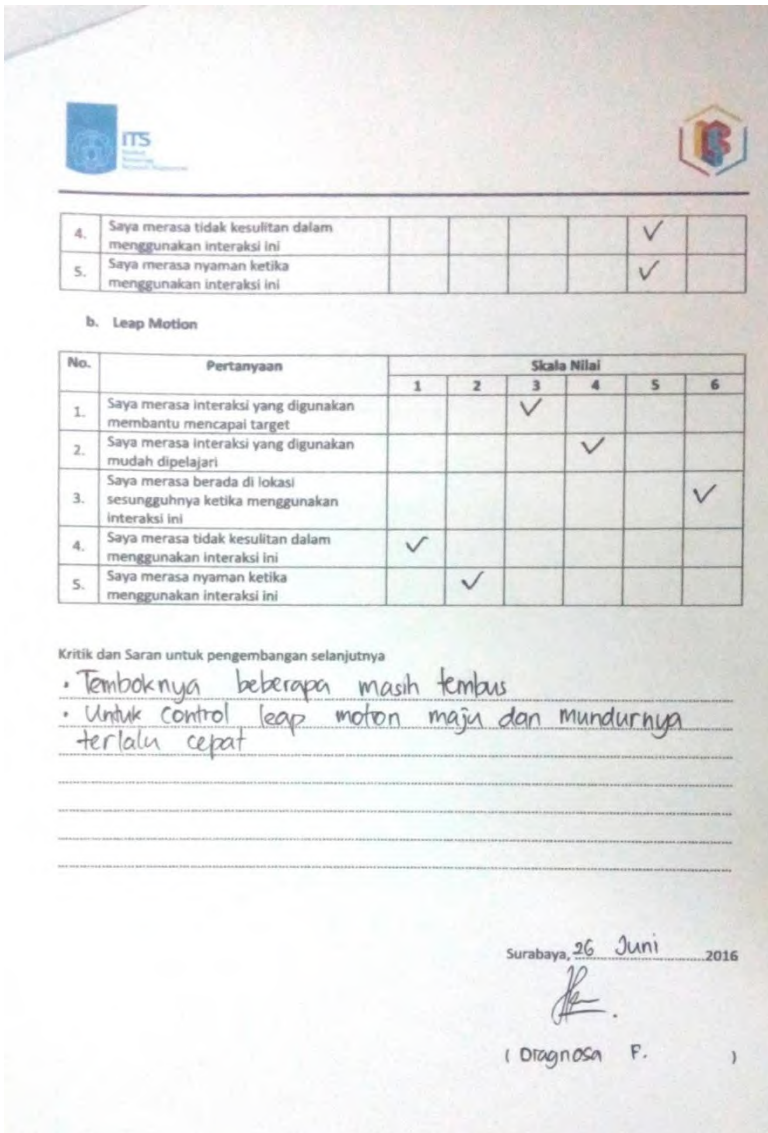 ITS
Institut
Teknologi
Sepuluh Nopember
4. Saya merasa tidak kesulitan dalam
menggunakan interaksi ini ✓
5. Saya merasa nyaman ketika
menggunakan interaksi ini ✓
b. Leap Motion
No. Pertanyaan Skala Nilai
1 2 3 4 5 6
1. Saya merasa interaksi yang digunakan
membantu mencapai target ✓
2. Saya merasa interaksi yang digunakan
mudah dipelajari ✓
3. Saya merasa berada di lokasi
sesungguhnya ketika menggunakan
interaksi ini ✓
4. Saya merasa tidak kesulitan dalam
menggunakan interaksi ini ✓
5. Saya merasa nyaman ketika
menggunakan interaksi ini ✓
Kritik dan Saran untuk pengembangan selanjutnya
• Temboknya beberapa masih tembus
• Untuk control leap motion maju dan mundurnya
terlalu cepat
Surabaya, 26 Juni 2016
( Diagnosa F. )